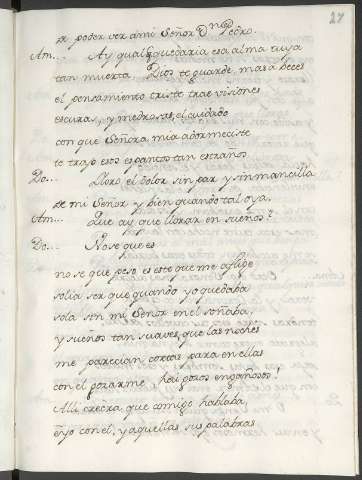 27
de poder ver a mi Señor Dⁿ Pedro.
Am... Ay qual quedaria esa alma cuya
tan muerta. Dios te guarde, mas a veces
el pensamiento triste trae visiones
escuras, y medrosas, el cuidado
con que Señora mia adormeciste
te trajo esos espantos tan estraños
Do... Lloro, el dolor sin par y sin mancilla
de mi Señor y bien quando tal oya.
Am... Que ay que llorar en sueños?
Do... No se que es
no se que peso es este que me aflige
solia ser que quando yo quedaba
sola sin mi Señor en el soñaba,
y sueños tan suaves, que las noches
me parecian cortas para en ellas
con el gozarme hai gozos engañosos!
Alli creera que comigo hablaba,
e yo con el, y aquellas sus palabras